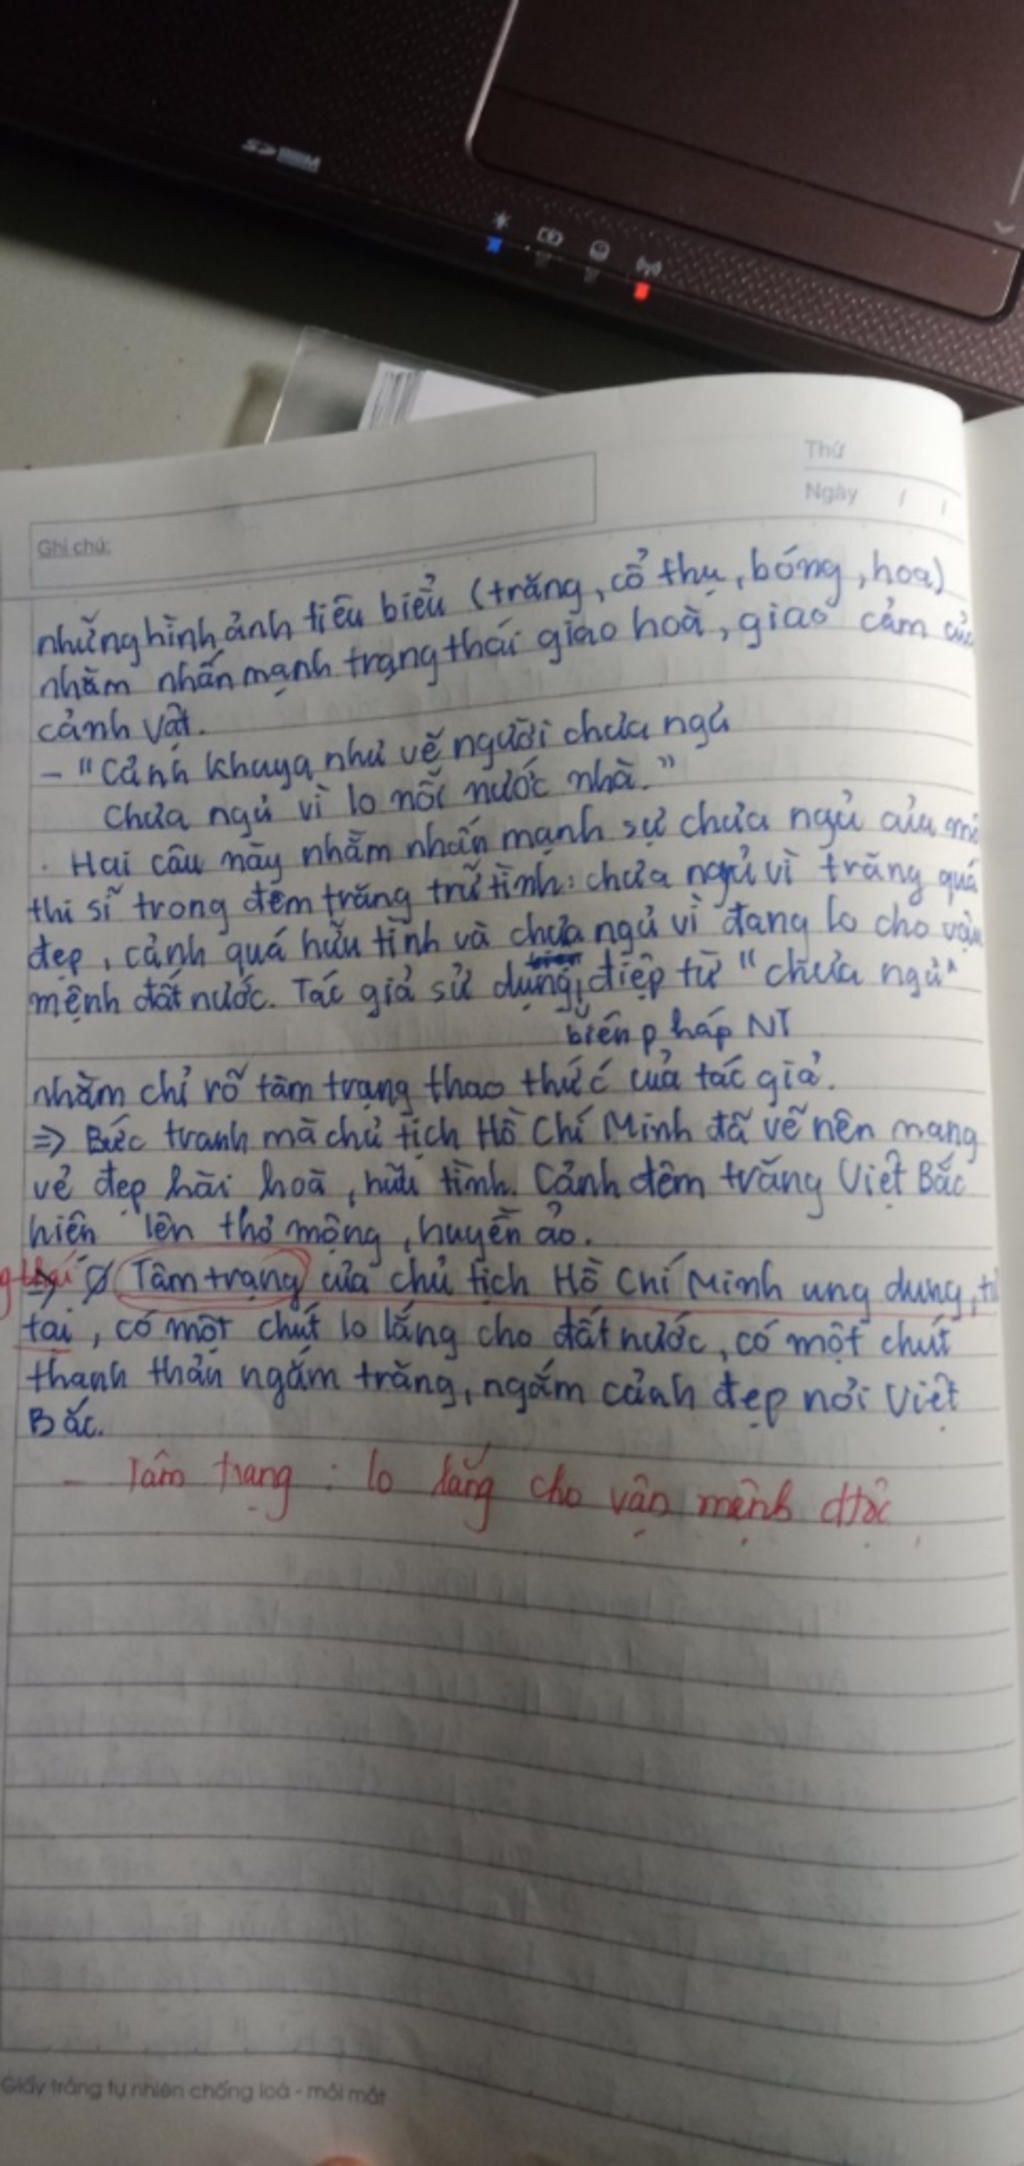 Thứ
Ngày / /
Ghi chú:
những hình ảnh tiêu biểu (trăng, cổ thụ, bóng, hoa)
nhằm nhấn mạnh trạng thái giao hoà, giao cảm của
cảnh vật.
- "Cảnh khuya như vẽ người chưa ngủ
Chưa ngủ vì lo nỗi nước nhà."
. Hai câu này nhằm nhấn mạnh sự chưa ngủ của
thi sĩ trong đêm trăng trữ tình: chưa ngủ vì trăng quá
đẹp, cảnh quá hữu tình và chưa ngủ vì đang lo cho vận
mệnh đất nước. Tác giả sử dụng điệp từ "chưa ngủ"
biện pháp NT
nhằm chỉ rõ tâm trạng thao thức của tác giả.
=> Bức tranh mà chủ tịch Hồ Chí Minh đã vẽ nên mang
vẻ đẹp hài hoà, hữu tình. Cảnh đêm trăng Việt Bắc
hiện lên thơ mộng, huyền ảo.
Tâm trạng của chủ tịch Hồ Chí Minh ung dung, tự
tại, có một chút lo lắng cho đất nước, có một chút
thanh thản ngắm trăng, ngắm cảnh đẹp nơi Việt
Bắc.
- Tâm trạng: lo lắng cho vận mệnh
Giấy trắng tự nhiên chống loá - mỏi mắt